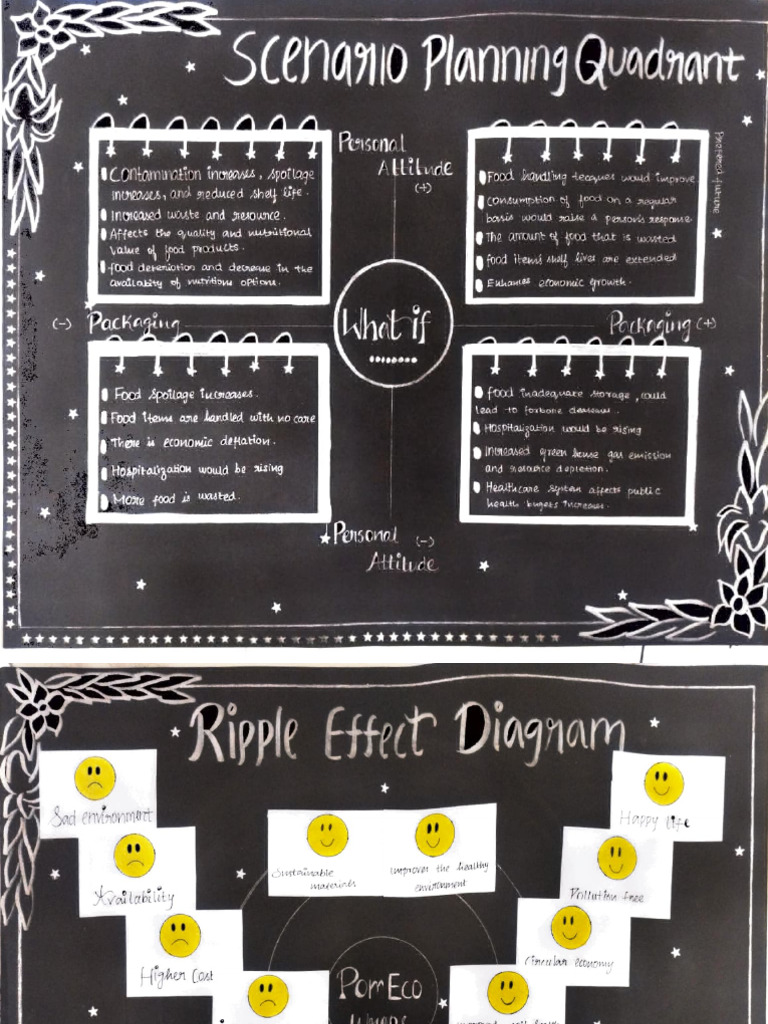 Scenario Planning Quadrant
Personal
Attitude
(+)
Contamination increases, spoilage
increases, and reduced shelf life.
Increased waste and resource.
Affects the quality and nutritional
value of food products.
food deteriotion and decrease in the
availability of nutritions options.
Food handling would improve
Consumption of food on a regular
basis would raise a person's response
The amount of food that is wasted
food items shelf lives are extended
Enhances economic growth.
Preferred future
(-) Packaging
What if
Packaging (+)
Food spoilage increases.
Food items are handled with no care
There is economic deflation.
Hospitalization would be rising
More food is wasted.
food inadequate storage, could
lead to
Hospitalization would be rising
Increased green house gas emission
and resource depletion.
Healthcare system affects public
health increases.
Personal (-)
Attitude
Ripple Effect Diagram
Sad environment
Happy life
Sustainable
materials
Improves the healthy
environment
Availability
Pollution free
Higher Cost
Circular economy
PomEco